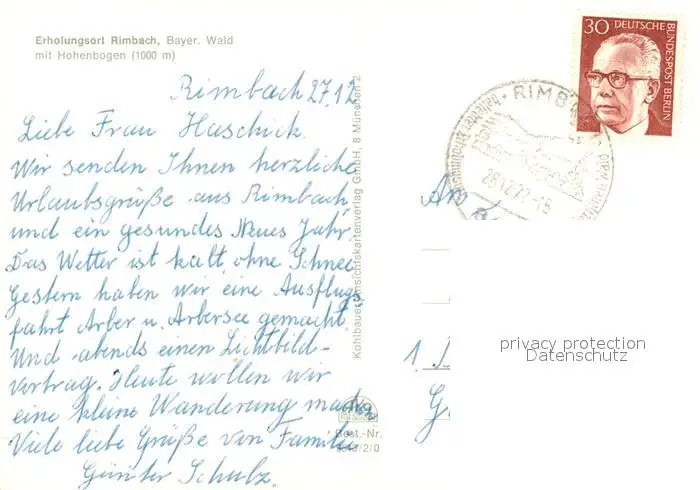 Erholungsort Rimbach, Bayer. Wald
mit Hohenbogen (1000 m)
Rimbach 27.12
Liebe Frau Haschick.
Wir senden Ihnen herzliche
Urlaubsgrüße aus Rimbach
und ein gesundes Neues Jahr.
Das Wetter ist kalt, ohne Schnee
Gestern haben wir eine Ausflugs
fahrt Arber u. Arbersee gemacht
Und abends einen Lichtbild-
vortrag. Heute wollen wir
eine kleine Wanderung machen
Viele liebe Grüße von Familie
Günter Schulz.
Kohlbauer Ansichtskartenverlag GmbH, 8 München 2
Best.-Nr.
30
DEUTSCHE BUNDESPOST BERLIN
RIMB
28.12.72-15
An
1
privacy protection
Datenschutz